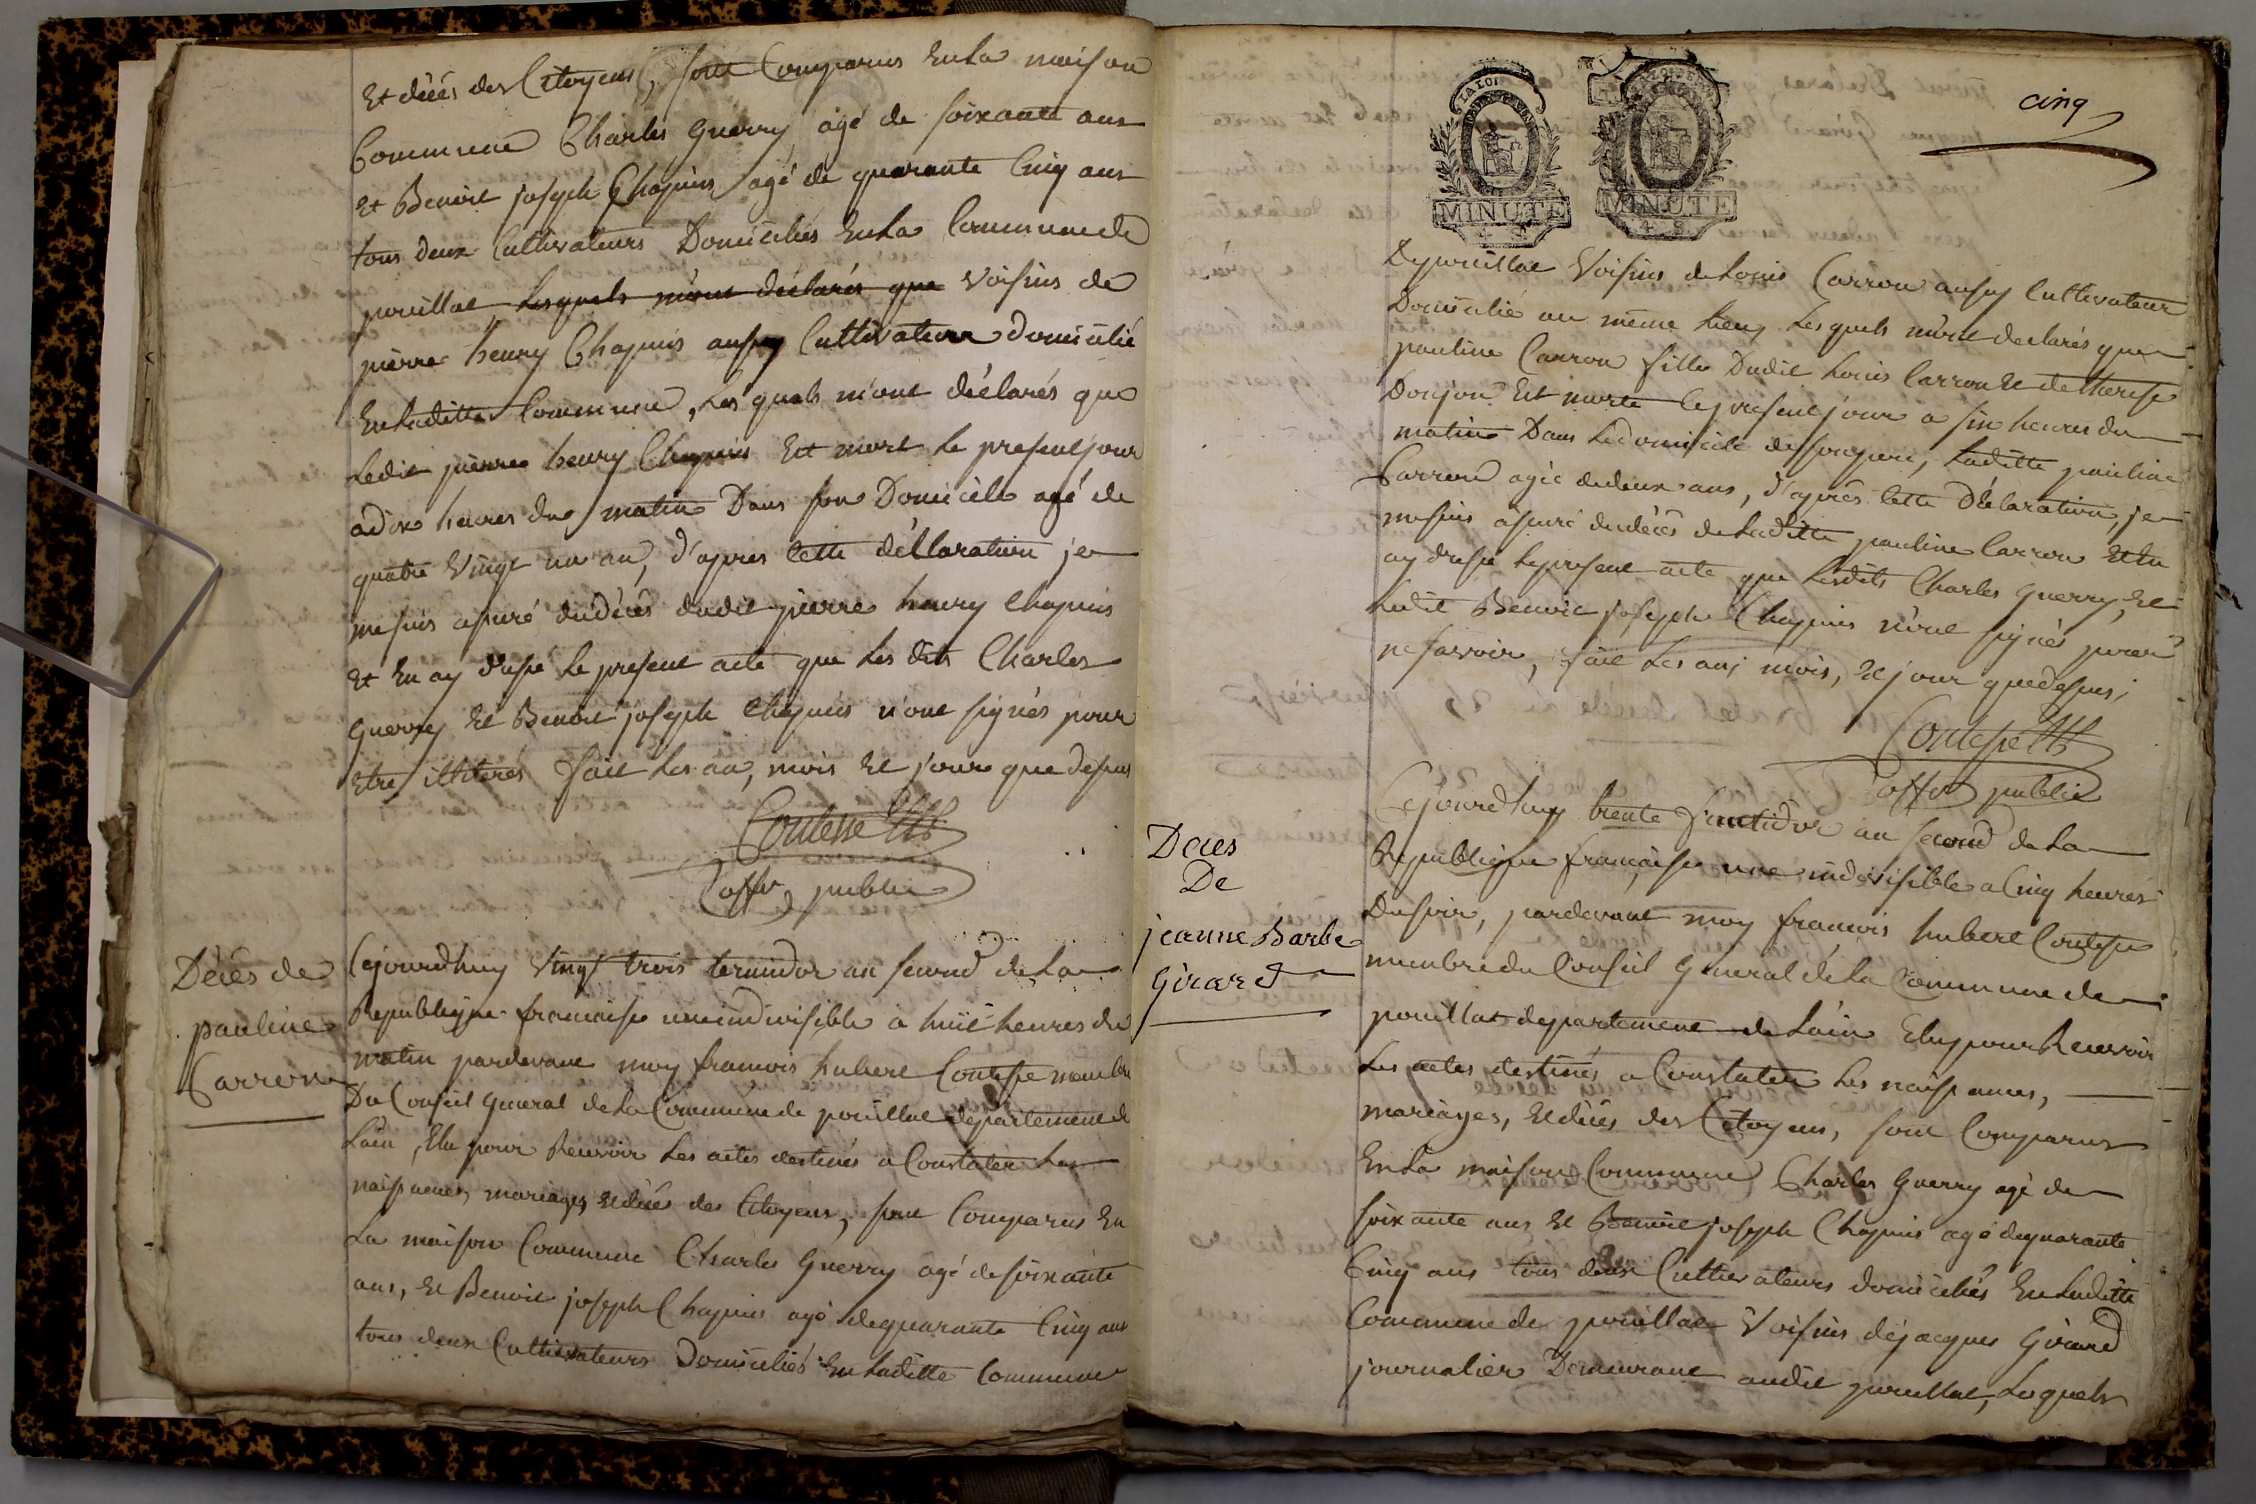 Et décés des Citoyens, sont Comparus En La maison
Commune Charles Guerry agé de soixante ans
Et Benoit joseph Chapuis agé de quarante Cinq ans
tous deux Cultivateurs Domiciliés En La Commune de
pouillat Lesquels m'ont déclarés que Voisins de
pierre henry Chapuis aussy Cultivateur domicilié
En Laditte Commune, Les quels m'ont déclarés que
Ledit pierre henry Chapuis Est mort Le present jour
a dix heures du matin Dans son Domicile agé de
quatre Vingt un an, d'apres Cette déclaration je
me suis assuré du décés dudit pierre henry Chapuis
Et En ay dressé Le present acte que Les dits Charles
Guerry Et Benoit joseph Chapuis n'ont signés pour
Etre illiterés fait Les an, mois Et jour que dessus
Contesse
offr public
Décés de
pauline
Carron
Cejourdhuy Vingt trois termidor an second de La
Republique francaise une indivisible a huit heures du
matin pardevant moy francois hubert Contesse membre
Du Conseil General de La Commune de pouillat departement de
Lain, Elu pour Recevoir Les actes destinés a Constater Les
naissances, mariages et décés des Citoyens, sont Comparus En
La maison Commune Charles Guerry agé de soixante
ans, Et Benoit joseph Chapuis agé de quarante Cinq ans
tous deux Cultivateurs Domiciliés En Laditte Commune
cinq
LA LOI
MINUTE
4 S
MINUTE
4 S
De pouillat Voisins de Louis Carron aussy Cultivateur
Domicilié au même Lieu, Les quels m'ont declarés que
pauline Carron fille Dudit Louis Carron Et de therese
Donjon Est morte Le present jour a six heures du
matin Dans Le domicile de son pere, Laditte pauline
Carron agée de deux ans, d'après Cette Déclaration je
me suis assuré du décés de Laditte pauline Carron Et En
ay dressé Le present acte que Lesdits Charles Guerry, Et
Ledit Benoit joseph Chapuis n'ont signés pour
ne savoir, fait Les an, mois, Et jour que dessus;
Contesse
offr public
Deces
De
jeanne Barbe
Girard
Cejourdhuy trente fructidor an second de La
Republique française une indivisible a Cinq heures
Du soir, pardevant moy francois hubert Contesse
membre du Conseil General de La Commune de
pouillat departement de Lain Elu pour Recevoir
Les actes destinés a Constater Les naissances,
mariages, Et décés des Citoyens, sont Comparus
En La maison Commune Charles Guerry agé de
soixante ans Et Benoit joseph Chapuis agé de quarante
Cinq ans tous deux Cultivateurs domiciliés En Laditte
Commune de pouillat Voisins de jacques Girard
journalier Demeurant audit pouillat, Lesquels